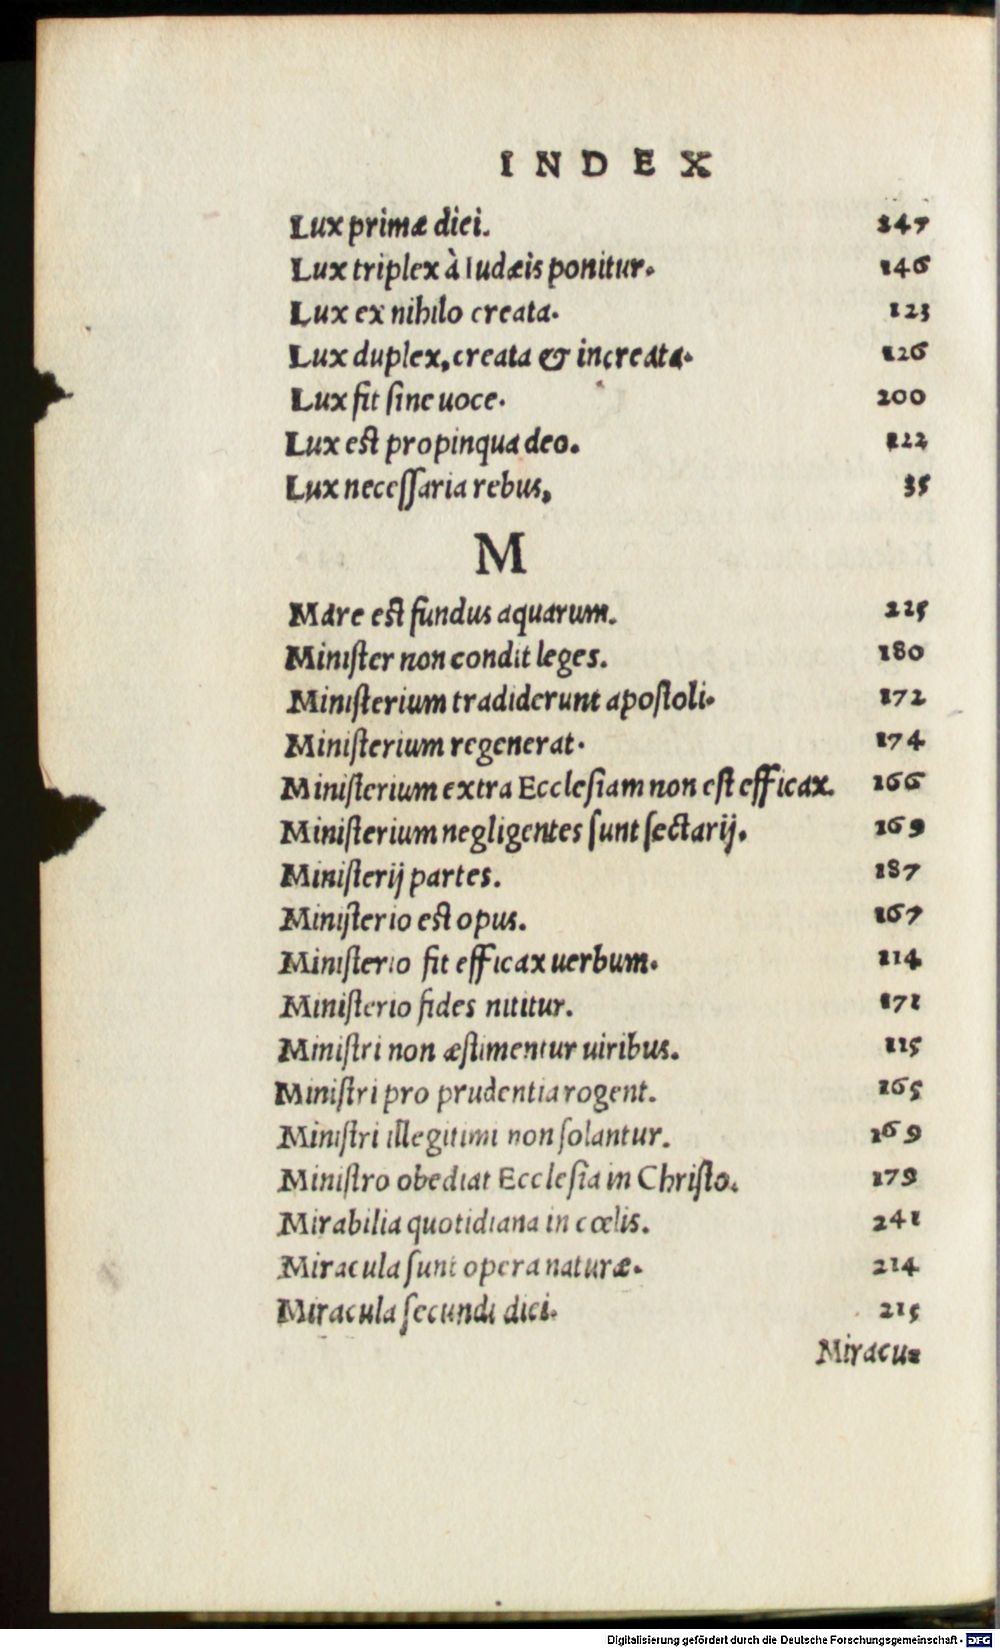 INDEX
Lux primæ diei. 147
Lux triplex à Iudæis ponitur. 146
Lux ex nihilo creata. 123
Lux duplex, creata & increata. 126
Lux fit ſine uoce. 200
Lux est propinqua deo. 122
Lux neceſſaria rebus, 35
M
Mare est fundus aquarum. 225
Miniſter non condit leges. 180
Miniſterium tradiderunt apoſtoli. 172
Miniſterium regenerat. 174
Miniſterium extra Eccleſiam non eſt efficax. 166
Miniſterium negligentes ſunt ſectarij. 169
Miniſterij partes. 187
Miniſterio est opus. 167
Miniſterio fit efficax uerbum. 114
Miniſterio fides nititur. 171
Miniſtri non æſtimentur uiribus. 115
Miniſtri pro prudentia rogent. 165
Miniſtri illegitimi non ſolantur. 169
Miniſtro obediat Eccleſia in Chriſto. 179
Mirabilia quotidiana in cœlis. 241
Miracula ſunt opera naturæ. 214
Miracula ſecundi diei. 215
Miracu-
Digitalisierung gefördert durch die Deutsche Forschungsgemeinschaft - DFG